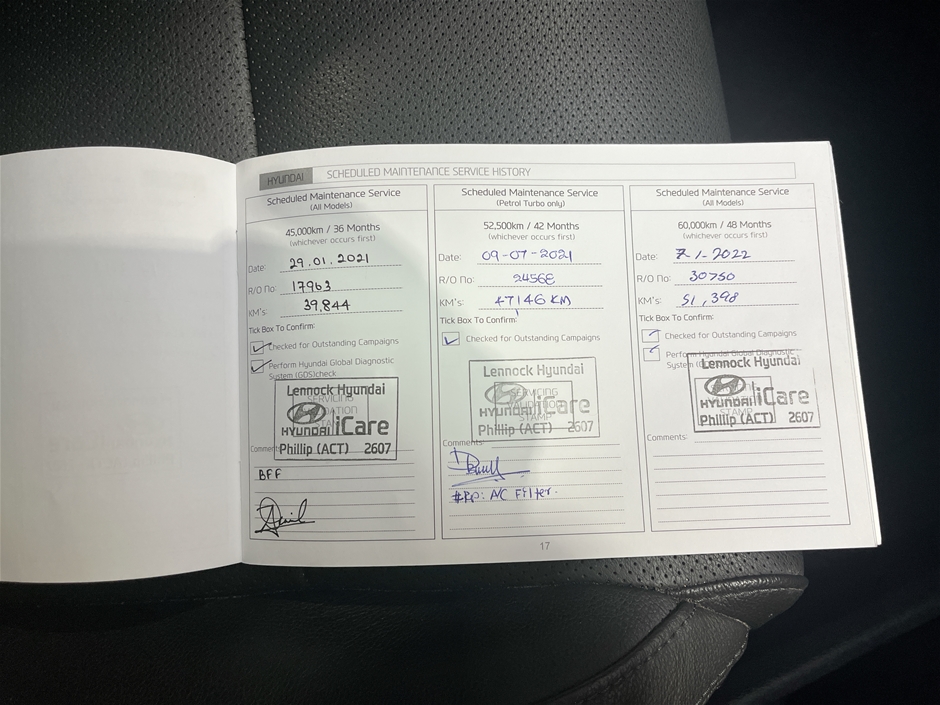 HYUNDAI SCHEDULED MAINTENANCE SERVICE HISTORY
Scheduled Maintenance Service
(All Models)
45,000km / 36 Months
(whichever occurs first)
Date: 29.01.2021
R/O No: 17963
KM's: 39,844
Tick Box To Confirm:
Checked for Outstanding Campaigns
Perform Hyundai Global Diagnostic
System (GDS)check
Lennock Hyundai
HYUNDAI iCare
Phillip (ACT) 2607
Comments:
BFF
Scheduled Maintenance Service
(Petrol Turbo only)
52,500km / 42 Months
(whichever occurs first)
Date: 09-07-2021
R/O No: 24568
KM's: 47146 KM
Tick Box To Confirm:
Checked for Outstanding Campaigns
Lennock Hyundai
SERVICING
VALIDATION
STAMP
HYUNDAI iCare
Phillip (ACT) 2607
Comments:
#Rp: A/C Filter.
Scheduled Maintenance Service
(All Models)
60,000km / 48 Months
(whichever occurs first)
Date: 7-1-2022
R/O No: 30750
KM's: 51,398
Tick Box To Confirm:
Checked for Outstanding Campaigns
Perform Hyundai Global Diagnostic
Lennock Hyundai
HYUNDAI iCare
STAMP
Phillip (ACT) 2607
Comments:
17